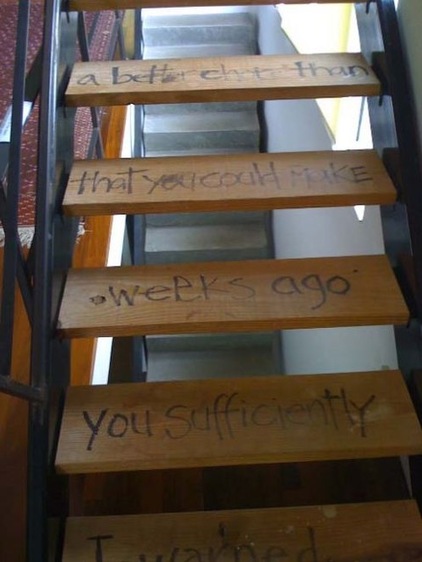 I warned
you sufficiently
weeks ago
that you could make
a better choice than